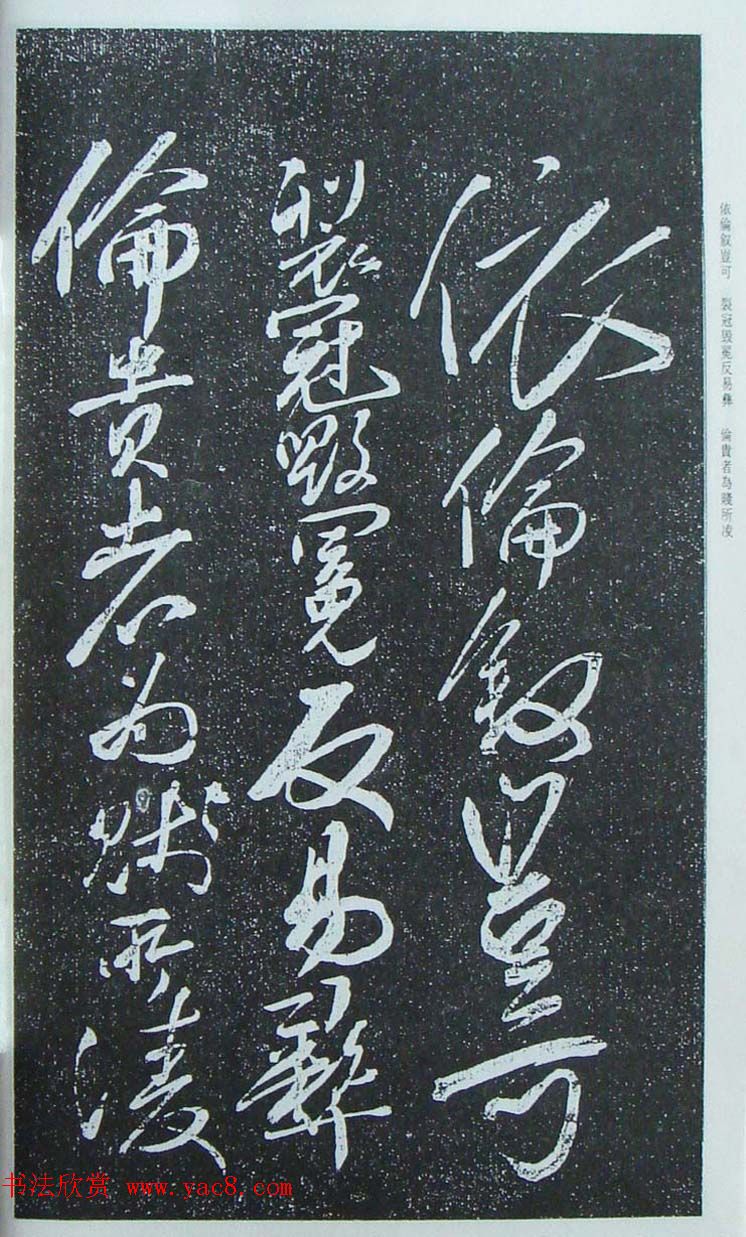 依倫叙豈可
裂冠毀冕反易彝
倫貴者為賤所凌
依倫叙豈可 裂冠毀冕反易彝 倫貴者為賤所凌
书法欣赏 www.yac8.com